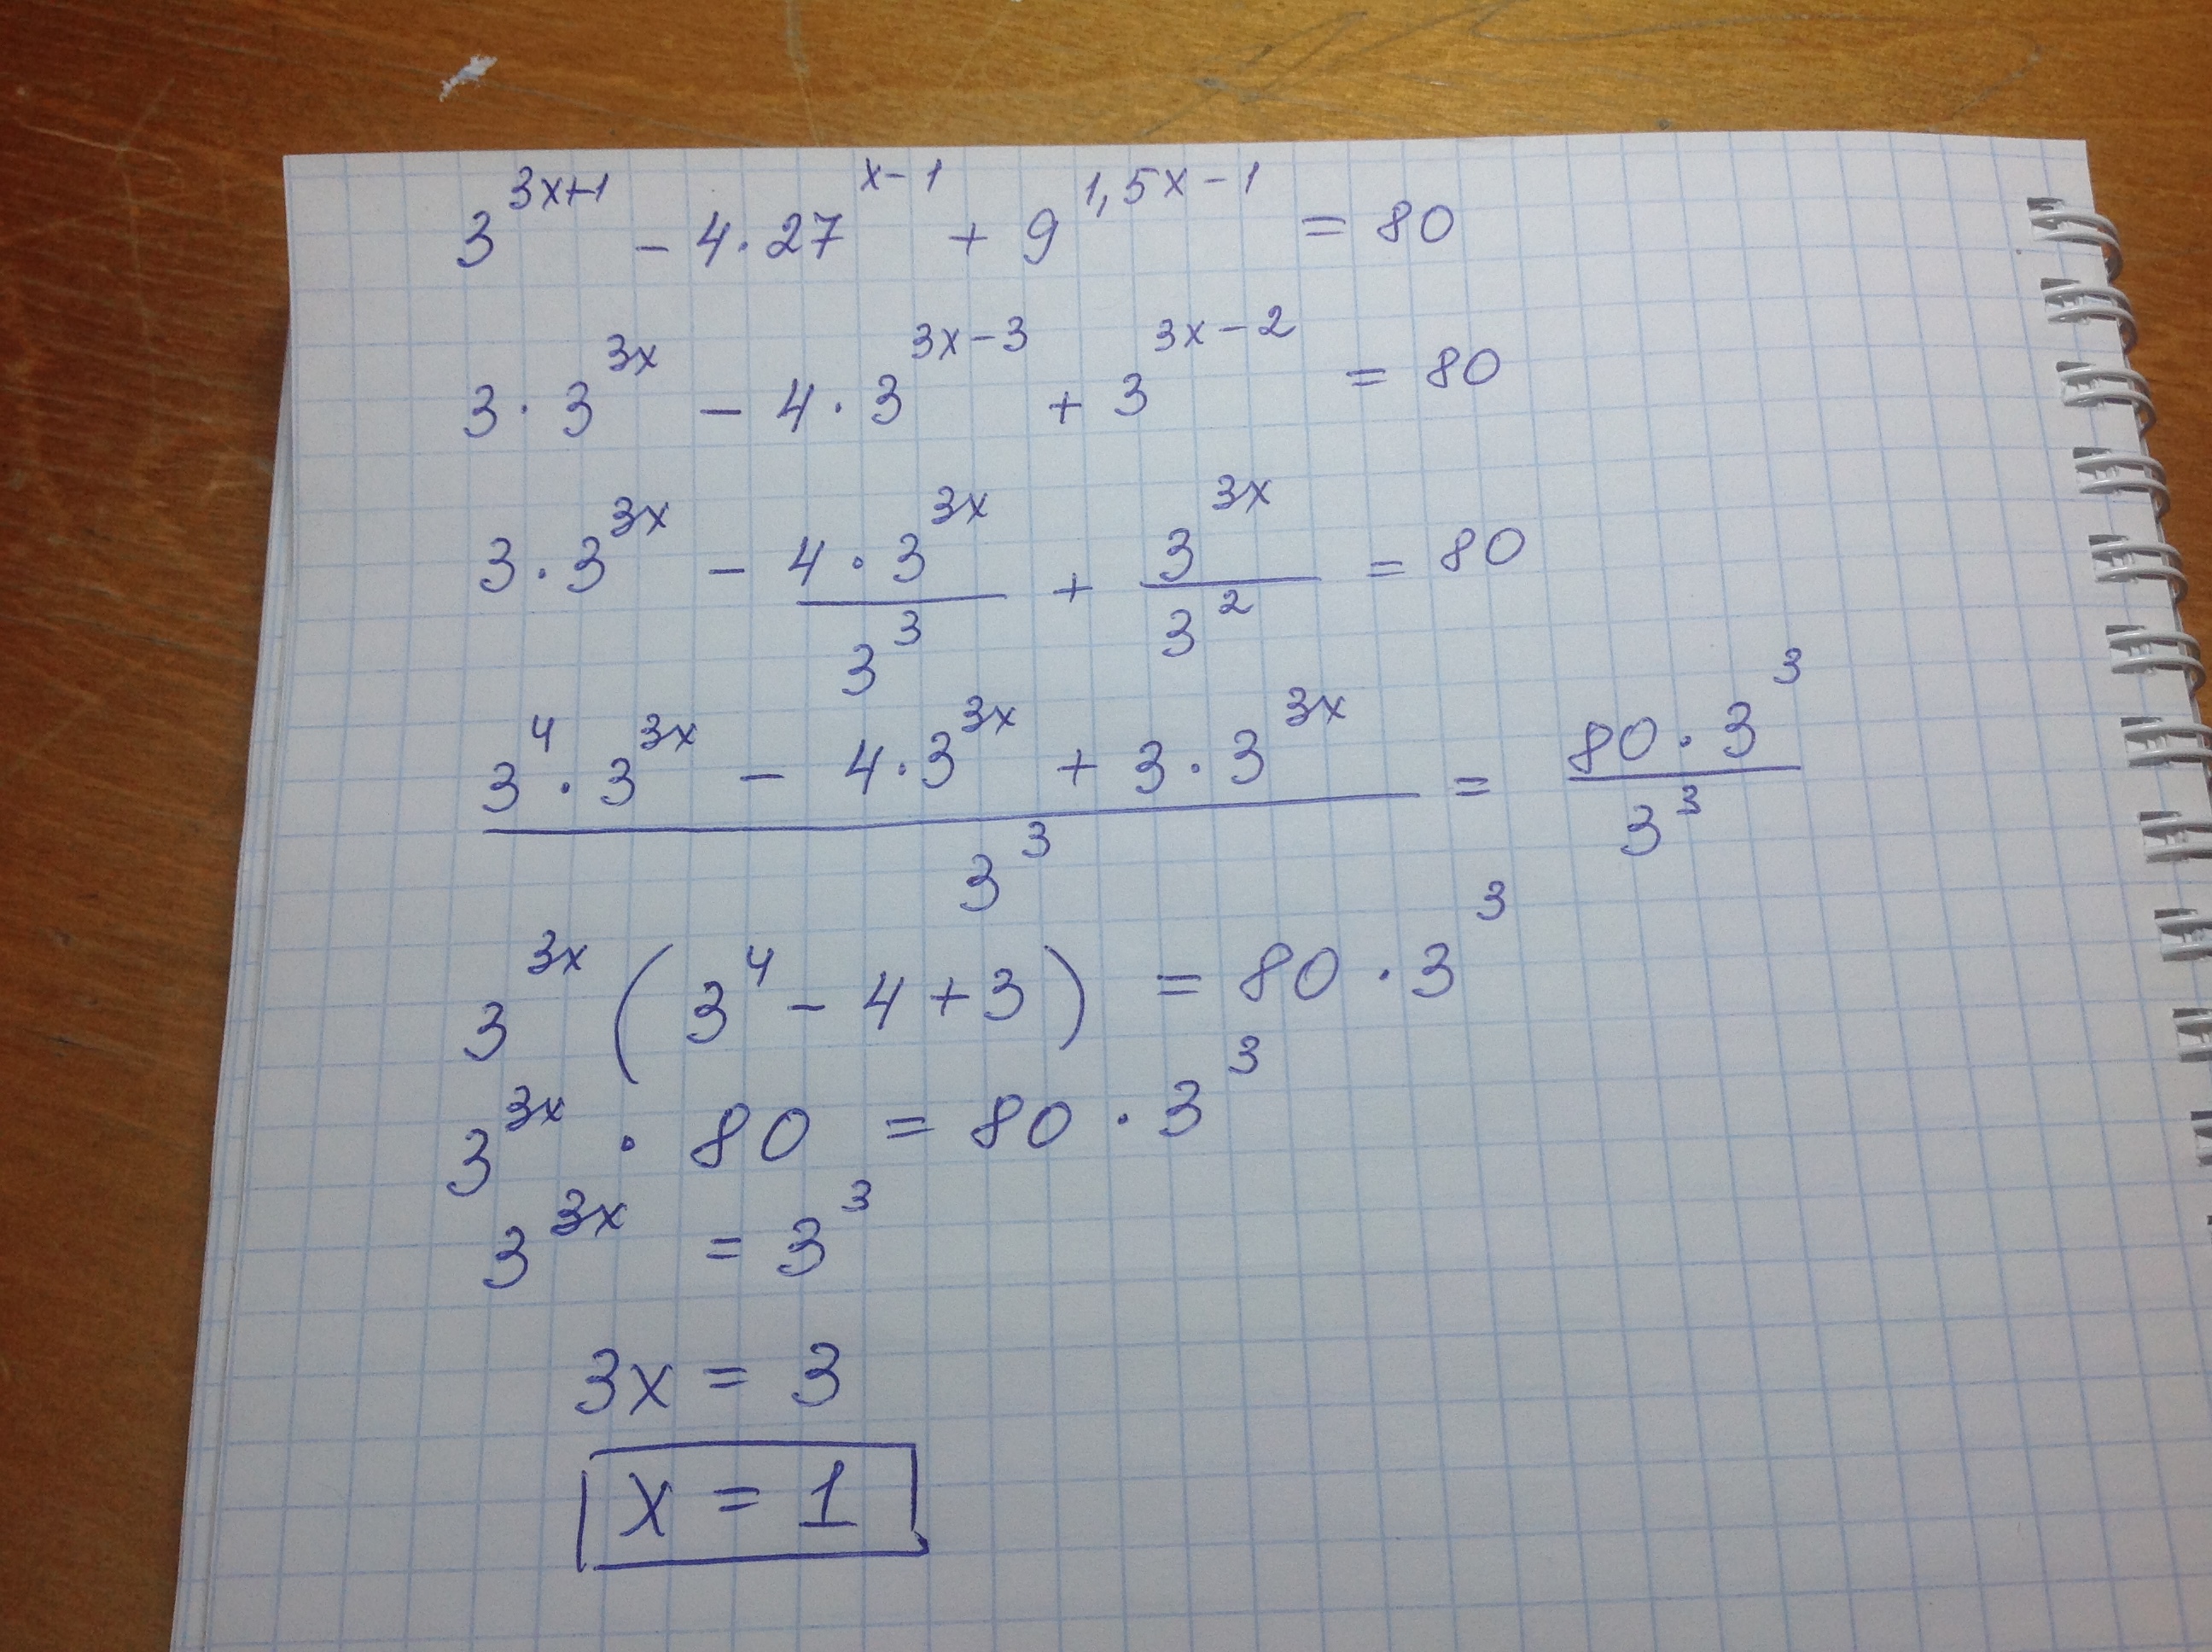 3^{3x+1} - 4·27^{x-1} + 9^{1,5x-1} = 80
3·3^{3x} - 4·3^{3x-3} + 3^{3x-2} = 80
3·3^{3x} - \frac{4·3^{3x}}{3^3} + \frac{3^{3x}}{3^2} = 80
\frac{3^4·3^{3x} - 4·3^{3x} + 3·3^{3x}}{3^3} = \frac{80·3^3}{3^3}
3^{3x}(3^4 - 4 + 3) = 80·3^3
3^{3x}·80 = 80·3^3
3^{3x} = 3^3
3x = 3
x = 1